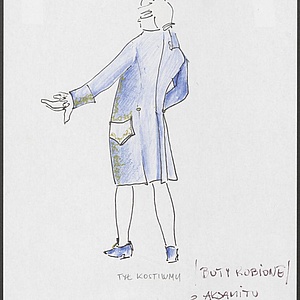 TYŁ KOSTIUMU
/BUTY ROBIONE/
z AKSAMITU